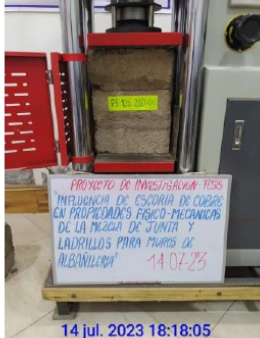 PROYECTO DE INVESTIGACION-TESIS
"INFLUENCIA DE ESCORIA DE COBRE
EN PROPIEDADES FISICO-MECANICAS
DE LA MEZCLA DE JUNTA Y
LADRILLOS PARA MUROS DE
ALBAÑILERIA"
14-07-23
14 jul. 2023 18:18:05